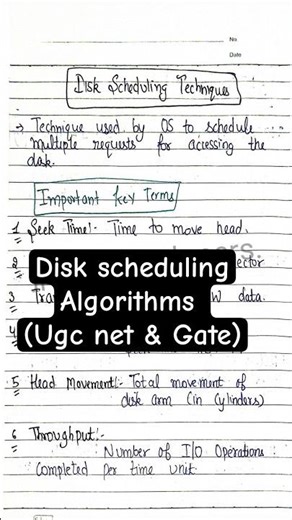 No
Date
Disk Scheduling Techniques
→ Technique used by OS to schedule
multiple requests for accessing the
disk.
Important Key Terms
1 Seek Time:- Time to move head.
2
Disk scheduling
3 data.
Algorithms
(Ugc net & Gate)
5 Head Movement:- Total movement of
disk arm (in cylinders)
6 Throughput:-
Number of I/O Operations
Completed per time unit